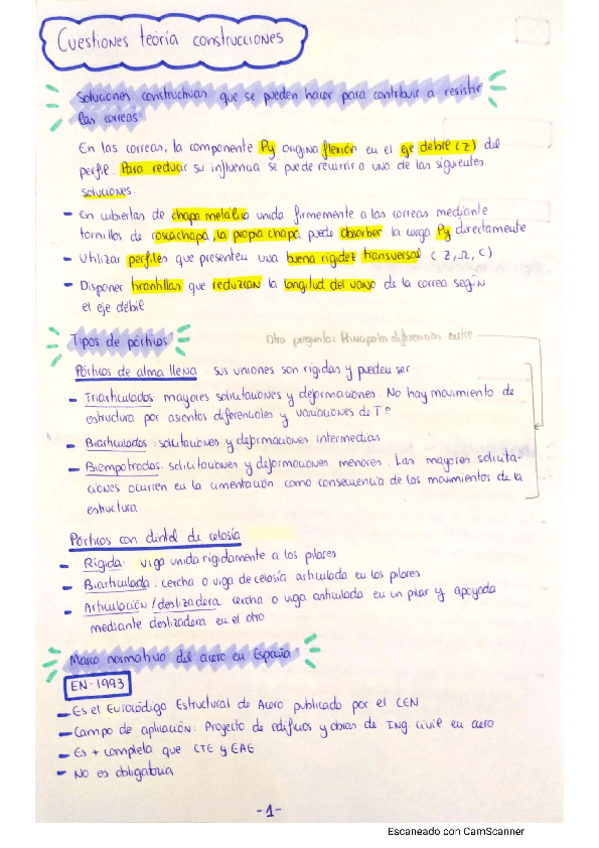 Cuestiones teoría construcciones
Soluciones constructivas que se pueden hacer para contribuir a resistir
las correas
En las correas, la componente Py origina flexión en el eje débil (z) del
perfil. Para reducir su influencia se puede recurrir a una de las siguientes
soluciones.
- En cubiertas de chapa metálica unida firmemente a las correas mediante
tornillos de roscachapa, la propia chapa puede absorber la carga Py directamente
- Utilizar perfiles que presenten una buena rigidez transversal (Z, Ω, C)
- Disponer tirantillas que reduzcan la longitud del vano de la correa según
el eje débil
Tipos de pórticos
Otra pregunta: Principales diferencias entre
Pórticos de alma llena sus uniones son rígidas y pueden ser
- Triarticulados: mayores solicitaciones y deformaciones. No hay movimiento de
estructura por asientos diferenciales y variaciones de Tº
- Biarticulados: solicitaciones y deformaciones intermedias
- Biempotrados: solicitaciones y deformaciones menores. Las mayores solicita-
ciones ocurren en la cimentación como consecuencia de los movimientos de la
estructura
Pórticos con dintel de celosía
- Rígida: viga unida rigidamente a los pilares
- Biarticulada: cercha o viga de celosía articulada en los pilares
- Articulación/deslizadera cercha o viga articulada en un pilar y apoyada
mediante deslizadera en el otro
Marco normativo del acero en España
EN-1993
- Es el Eurocódigo Estructural de Acero publicado por el CEN
- Campo de aplicación: Proyecto de edificios y obras de Ing. civil en acero
- Es + completa que CTE y EAE
- No es obligatoria
-1-
Escaneado con CamScanner